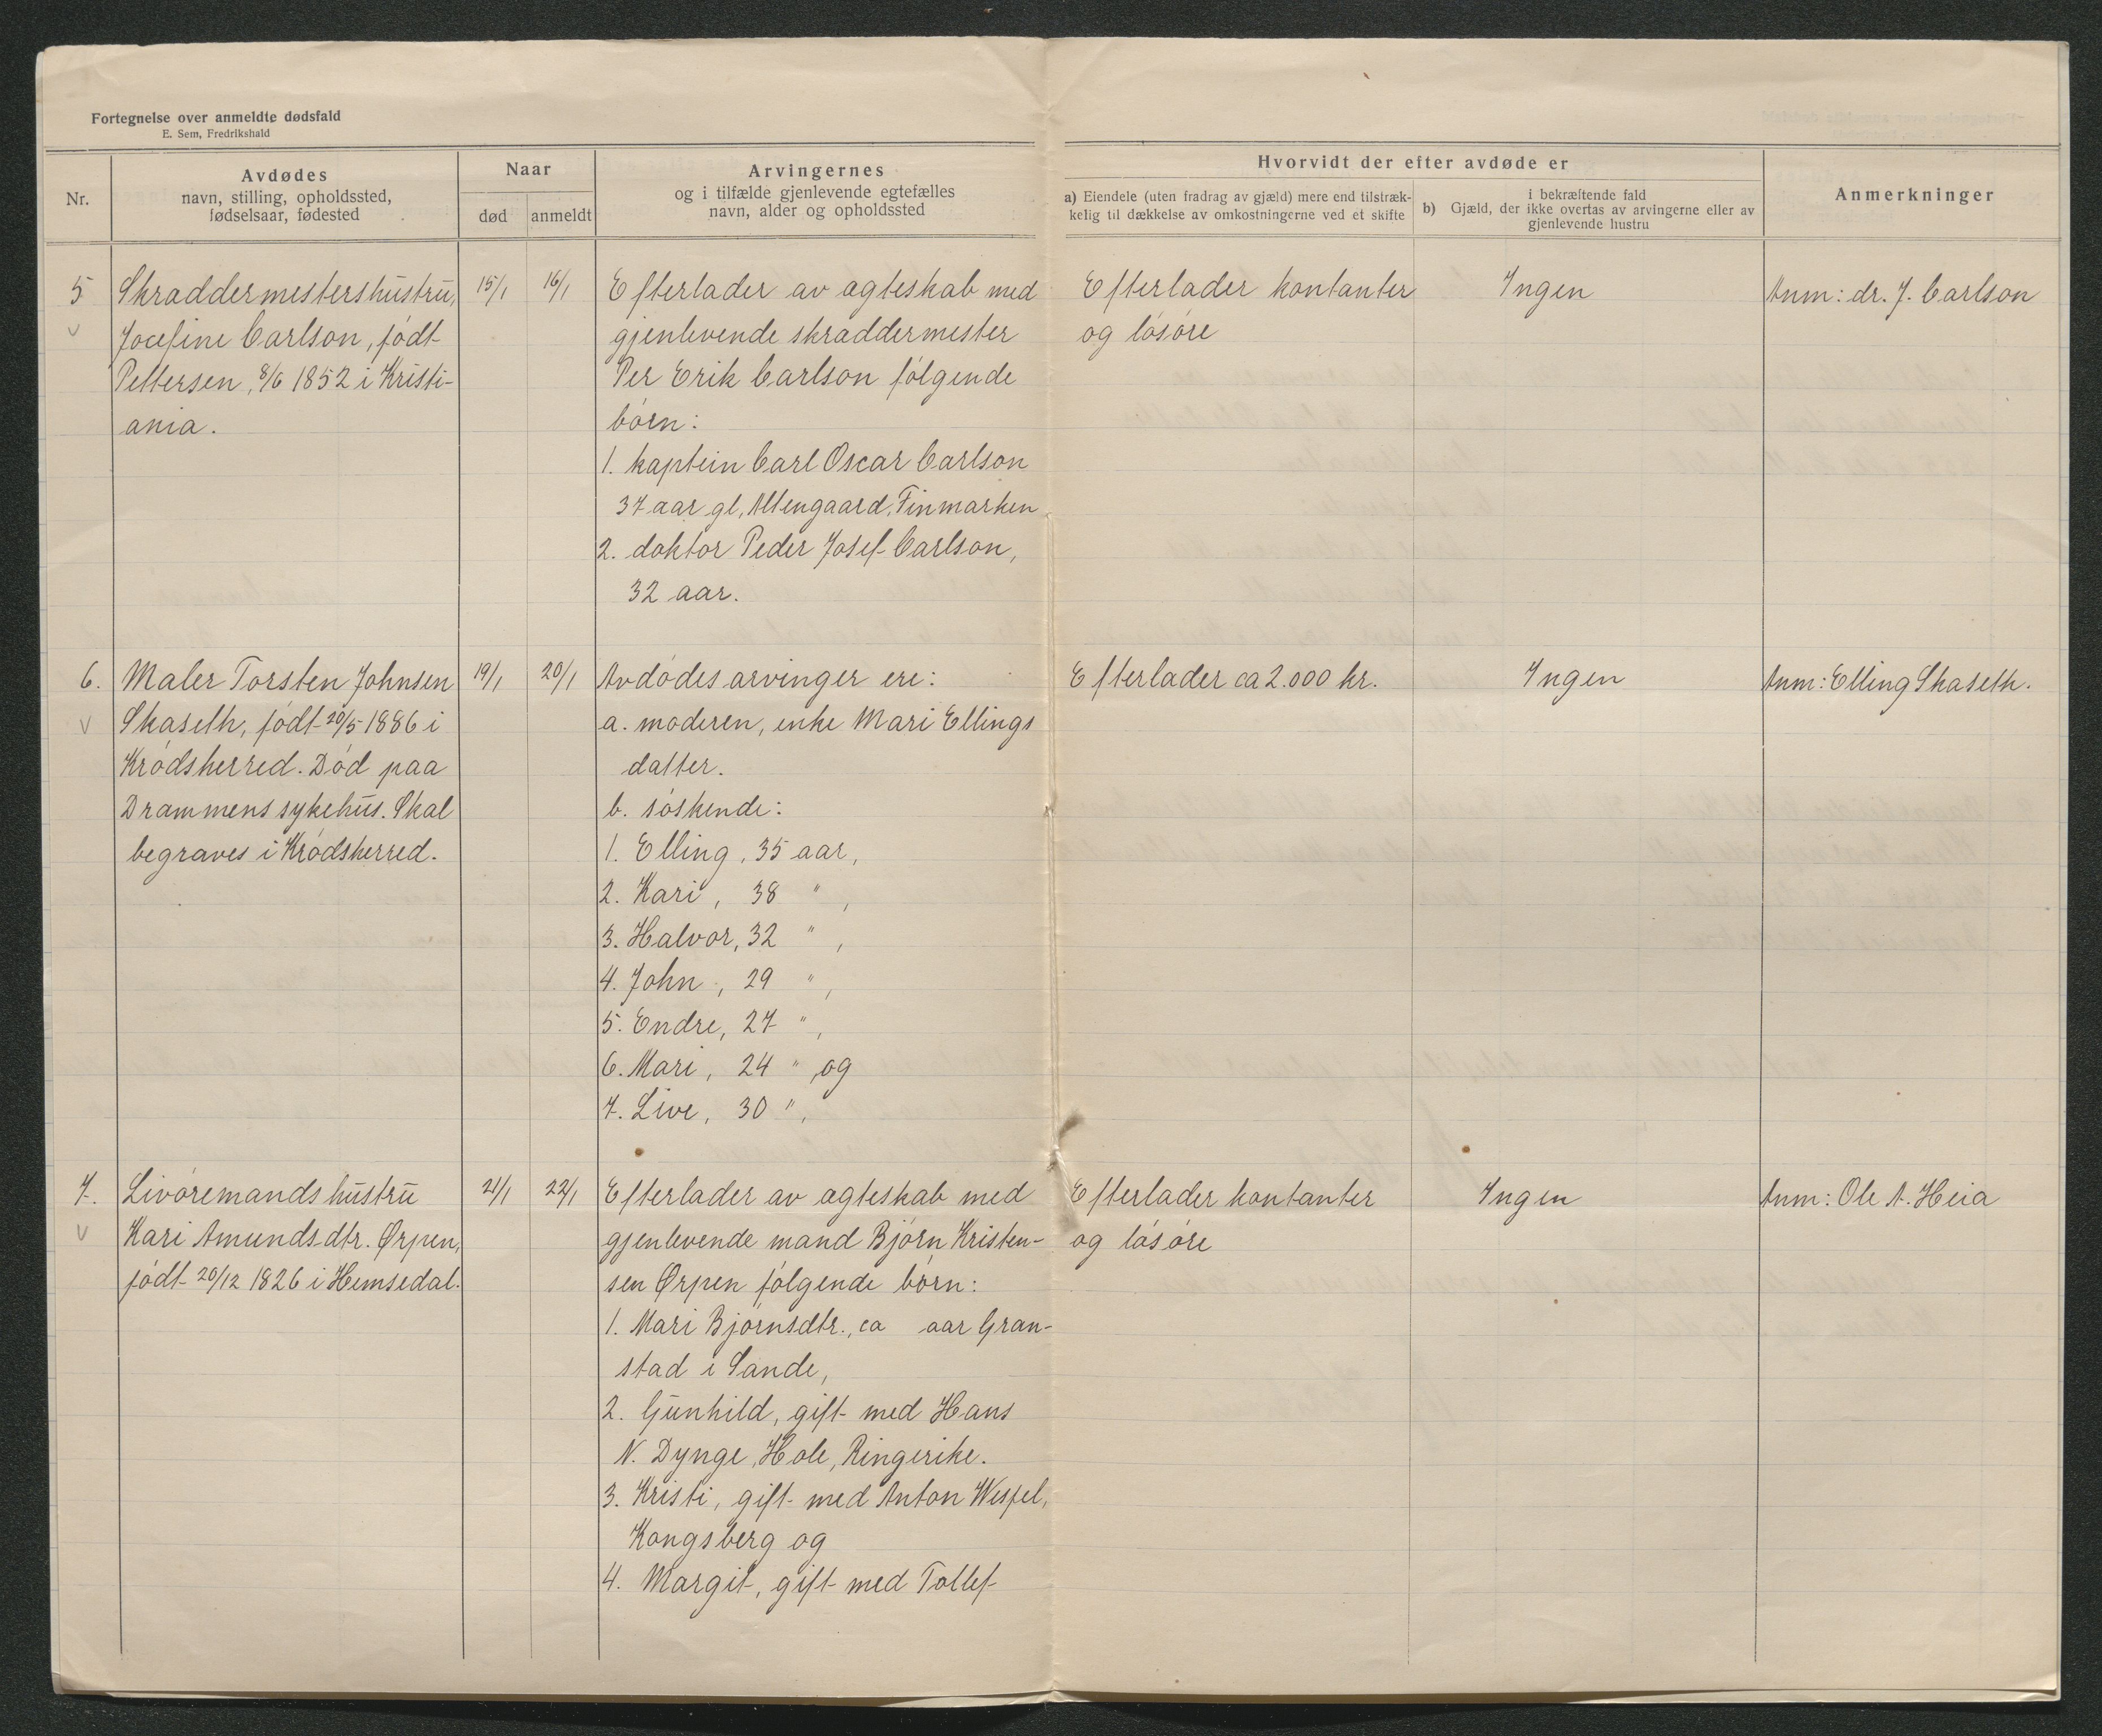 Fortegnelse over anmeldte dødsfald
E. Sem, Fredrikshald
Nr.
Avdødes
navn, stilling, opholdssted,
fødselsaar, fødested
Naar
død
anmeldt
Arvingernes
og i tilfælde gjenlevende egtefælles
navn, alder og opholdssted
Hvorvidt der efter avdøde er
a) Eiendele (uten fradrag av gjæld) mere end tilstræk-
kelig til dækkelse av omkostningerne ved et skifte
i bekræftende fald
b) Gjæld, der ikke overtas av arvingerne eller av
gjenlevende hustru
Anmerkninger
5
Skraddermestershustru,
Josefine Carlson, født
Pettersen, 8/6 1852 i Kristi-
ania.
15/1
16/1
Efterlader av ægteskab med
gjenlevende skraddermester
Per Erik Carlson følgende
børn:
1. kaptein Carl Oscar Carlson
37 aar gl, Altengaard, Finmarken
2. doktor Peder Josef Carlson,
32 aar.
Efterlader kontanter
og løsøre
Ingen
Anm: dr. J. Carlson
6.
Maler Torsten Johnsen
Skaseth, født 20/5 1886 i
Krødsherred. Død paa
Drammens sykehus. Skal
begraves i Krødsherred.
19/1
20/1
Avdødes arvinger ere:
a. moderen, enke Mari Ellings
datter.
b. søskende:
1. Elling, 35 aar,
2. Kari, 38 " ,
3. Halvor, 32 " ,
4. John, 29 " ,
5. Endre, 27 " ,
6. Mari, 24 " , og
7. Live, 30 " ,
Efterlader ca 2.000 kr.
Ingen
Anm: Elling Skaseth.
7.
Livøremands hustru
Kari Amundsdtr. Ørpen,
født 20/12 1826 i Hemsedal.
21/1
22/1
Efterlader av ægteskab med
gjenlevende mand Bjørn Kristen-
sen Ørpen følgende børn:
1. Mari Bjørnsdtr., ca aar Gran-
stad i Sande,
2. Gunhild, gift med Hans
N. Dynge, Hole, Ringerike.
3. Kristi, gift med Anton Wespel,
Kongsberg og
4. Margit, gift med Tollef
Efterlader kontanter
og løsøre
Ingen
Anm: Ole A. Heia